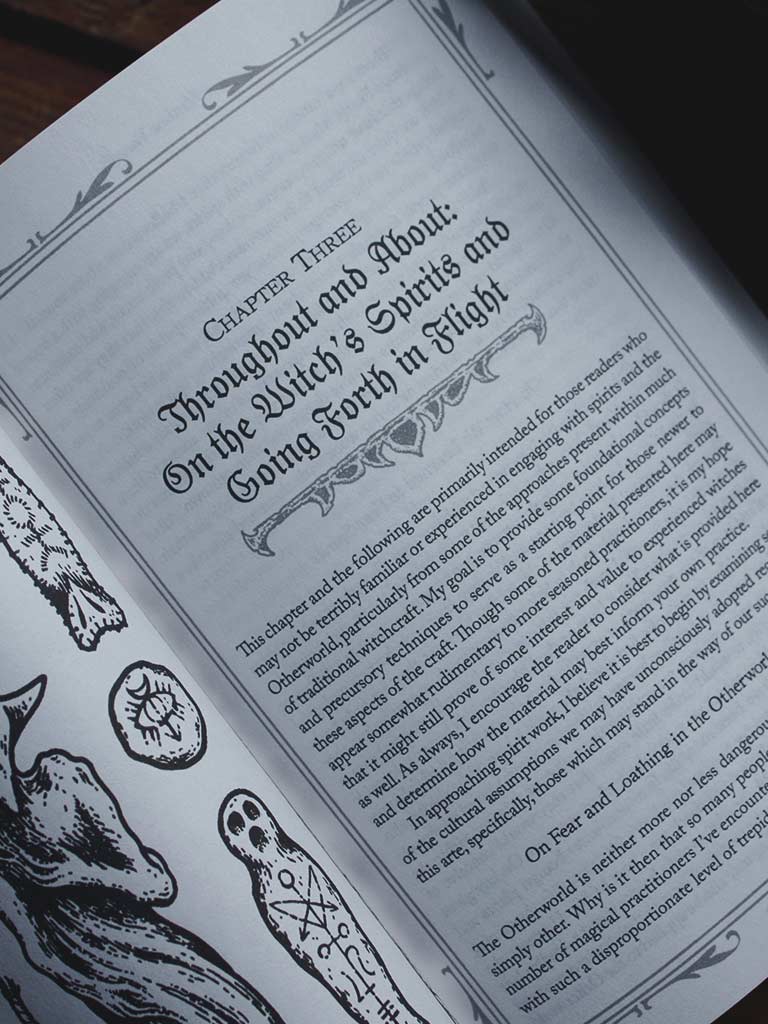 CHAPTER THREE
Throughout and About:
On the Witch's Spirits and
Going Forth in Flight
This chapter and the following are primarily intended for those readers who
may not be terribly familiar or experienced in engaging with spirits and the
Otherworld, particularly from some of the approaches present within much
of traditional witchcraft. My goal is to provide some foundational concepts
and precursory techniques to serve as a starting point for those newer to
these aspects of the craft. Though some of the material presented here may
appear somewhat rudimentary to more seasoned practitioners, it is my hope
that it might still prove of some interest and value to experienced witches
as well. As always, I encourage the reader to consider what is provided here
and determine how the material may best inform your own practice.
In approaching spirit work, I believe it is best to begin by examining
of the cultural assumptions we may have unconsciously adopted
this arte, specifically, those which may stand in the way of our
On Fear and Loathing in the
The Otherworld is neither more nor less
simply other. Why is it then that so many people
number of magical practitioners I've
with such a disproportionate level of